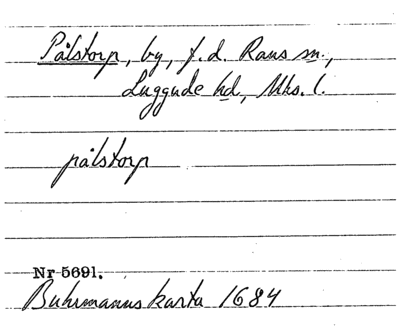 Pålstorp, by, f.d. Raus sn.,
Luggude hd, Mhs. l.
pålstorp
Nr 5691.
Buhrmanns karta 1684